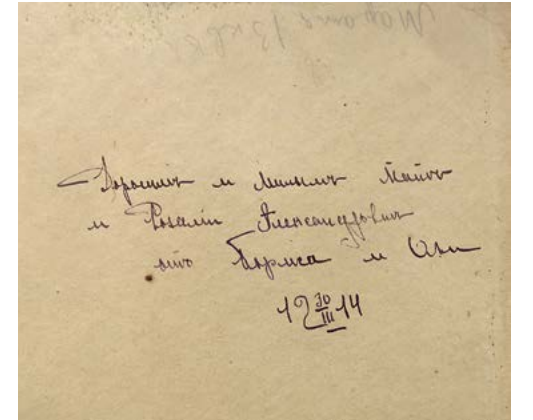 Дорогимъ и милымъ
и Розаліи Александровнѣ
отъ Бориса и Оли
19 30/III 14